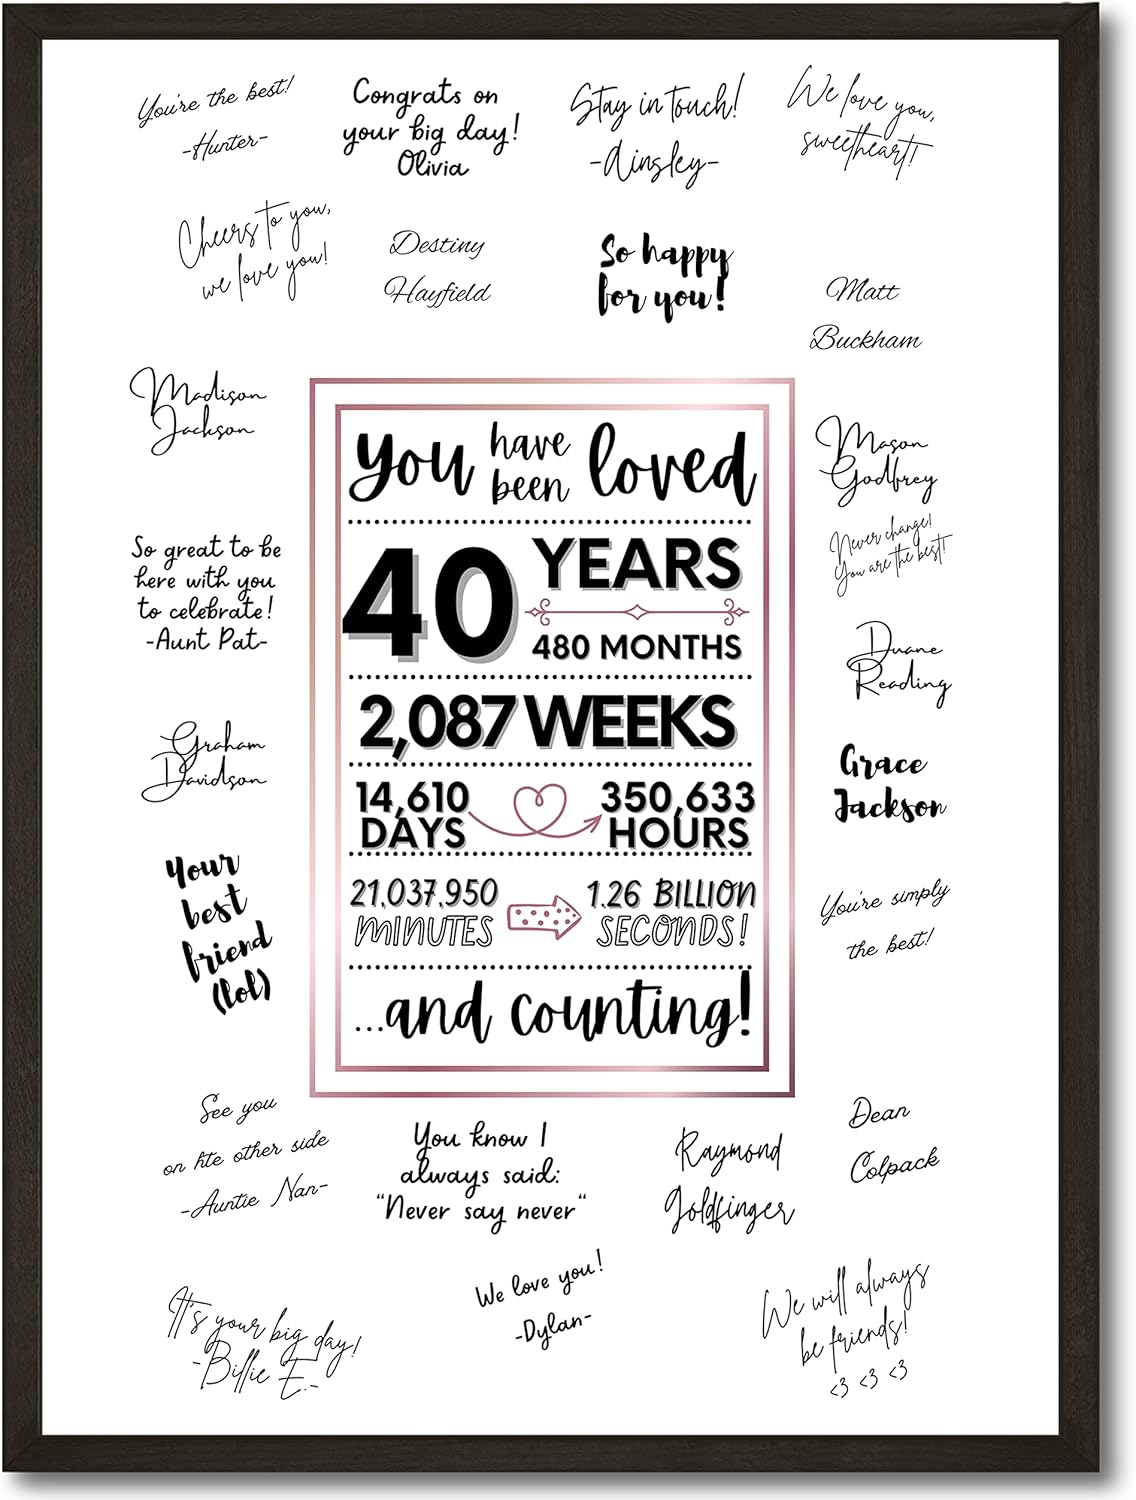 You're the best!
-Hunter-
Congrats on
your big day!
Olivia
Stay in touch!
-Ainsley-
We love you,
sweetheart!
Cheers to you,
we love you!
Destiny
Hayfield
So happy
for you!
Matt
Buckham
Madison
Jackson
Mason
Godfrey
Never change!
You are the best!
So great to be
here with you
to celebrate!
-Aunt Pat-
Duane
Reading
Graham
Davidson
Grace
Jackson
Your
best
friend
(lol)
You're simply
the best!
You have been loved
40 YEARS
480 MONTHS
2,087 WEEKS
14,610 DAYS
350,633 HOURS
21,037,950 MINUTES
1.26 BILLION SECONDS!
...and counting!
See you
on hte other side
-Auntie Nan-
You know I
always said:
"Never say never"
Raymond
Goldfinger
Dean
Colpack
It's your big day!
-Billie E.-
We love you!
-Dylan-
We will always
be friends!
<3 <3 <3